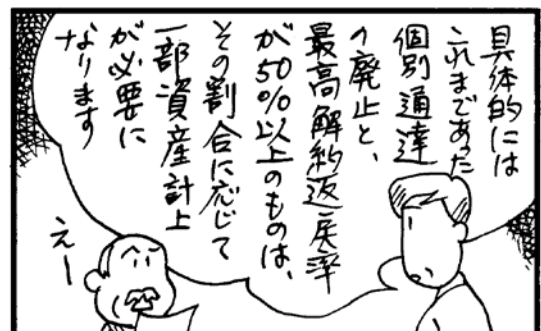 具体的には
これまであった
個別通達
の廃止と、
最高解約返戻率
が50%以上のものは、
その割合に応じて
一部資産計上
が必要に
なります
えー